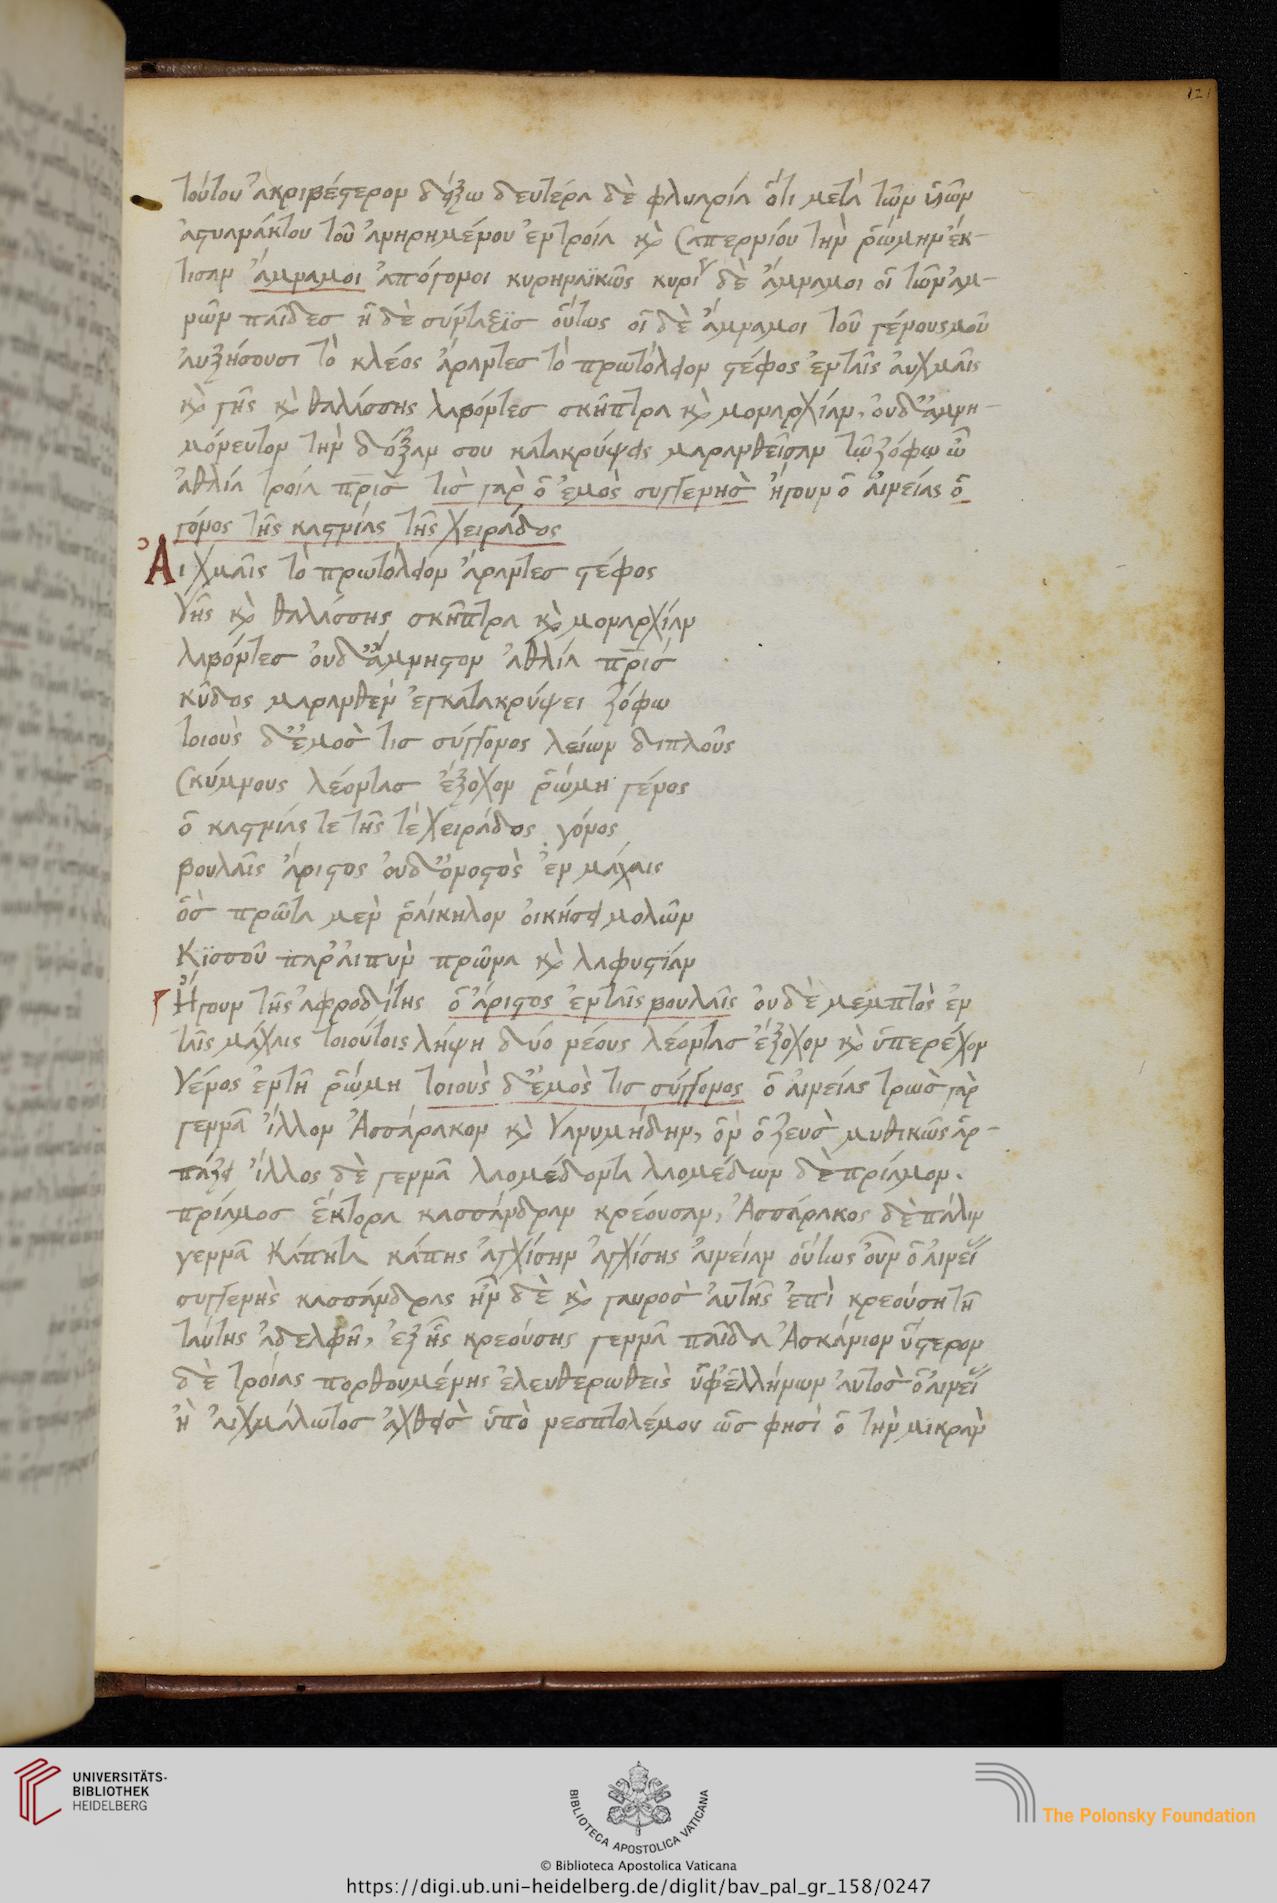 121
τούτου ἀκριβέστερον δείξω δευτέρα δὲ φλυαρία ὅτι μετὰ τῶν υἱῶν
ἀστυάνακτου τοῦ ἀνηρημένου ἐν τροία κὶ σαπερνίου τὴν ῥώμην ἔκ-
τισαν ἄμναμοι ἀπόγονοι κυρηναϊκῶς κυρί δὲ ἄμναμοι οἱ τῶν ἀμ-
νῶν παῖδες ἡ δὲ σύνταξϊς οὕτως οἱ δὲ ἄμναμοι τοῦ γένους μοῦ
αὐξήσουσι τὸ κλέος ἄραντες τὸ πρωτόλειον στέφος ἐν ταῖς αἰχμαῖς
κὶ γῆς κὶ θαλάσσης λαβόντες σκῆπτρα κὶ μοναρχίαν, οὐδ' ἀμνη-
μόνευτον τὴν δόξαν σου κατακρύψεις μαρανθεῖσαν τῷ ζόφω ὦ
ἀθλία τροία πρὶς τὶς γὰρ ὁ ἐμὸς συγγενὴς ἤγουν ὁ αἰνείας ὁ
γόνος τῆς καστνίας τῆς χειράδος
Αἰχμαῖς τὸ πρωτόλειον ἄραντες στέφος
γῆς κὶ θαλάσσης σκῆπτρα κὶ μοναρχίαν
λαβόντες οὐδ' ἄμνηστον ἀθλία πρίς
κῦδος μαρανθὲν ἐγκατακρύψει ζόφω
τοιοὺς δ' ἐμὸς τις σύγγονος λείων διπλοῦς
σκύμνους λέοντας ἔξοχον ῥώμη γένος
ὁ καστνίας τε τῆς τέ χειράδος γόνος
βουλαῖς ἄριστος οὐδ' ὀνοστὸς ἐν μάχαις
ὃς πρῶτα μὲν ῥαίκηλον οἰκήσει μολῶν
Κϊσσοῦ παρ' αἰπυν πρῶνα κὶ λαφυστίαν
Ἤγουν τῆς ἀφροδίτης ὁ ἄριστος ἐν ταῖς βουλαῖς οὐ δὲ μεμπτὸς ἐν
ταῖς μάχαις τοιούτοις λήψη δύο νέους λέοντας ἔξοχον κὶ ὑπερέχον
γένος ἐν τῆ ῥώμη τοιοὺς δ' ἐμὸς τις σύγγονος ὁ αἰνείας τρωὸς γὰρ
γεννᾶ ἴλλον Ἀσσάρακον κὶ γανυμήδην, ὃν ὁ ζευς μυθικῶς ἁρ-
πάζει ἴλλος δὲ γεννᾶ λαομέδοντα λαομέδων δὲ πρίαμον.
πρίαμος ἕκτορα κασσάνδραν κρέουσαν, Ἀσσάρακος δὲ πάλιν
γεννᾶ Κάπητα κάπης ἀγχίσην ἀγχίσης αἰνείαν οὕτως οὖν ὁ αἰνεί
συγγενὴς κασσάνδρας ἦν δὲ κὶ γαυρὸς αὐτῆς ἐπὶ κρεούση τῆ
ταύτης ἀδελφῆ, ἐξ ἧς κρεούσης γεννᾶ παῖδα Ἀσκάνιον ὕστερον
δὲ τροίας πορθουμένης ἐλευθερωθεὶς ὑφ' ἑλλήνων αὐτὸς ὁ αἰνεί
ἢ αἰχμάλωτος ἀχθεὶς ὑπὸ νεοπτολέμου ὥς φησὶ ὁ τὴν μϊκρὰν
UNIVERSITÄTS-
BIBLIOTHEK
HEIDELBERG
BIBLIOTECA APOSTOLICA VATICANA
The Polonsky Foundation
© Biblioteca Apostolica Vaticana
https://digi.ub.uni-heidelberg.de/diglit/bav_pal_gr_158/0247